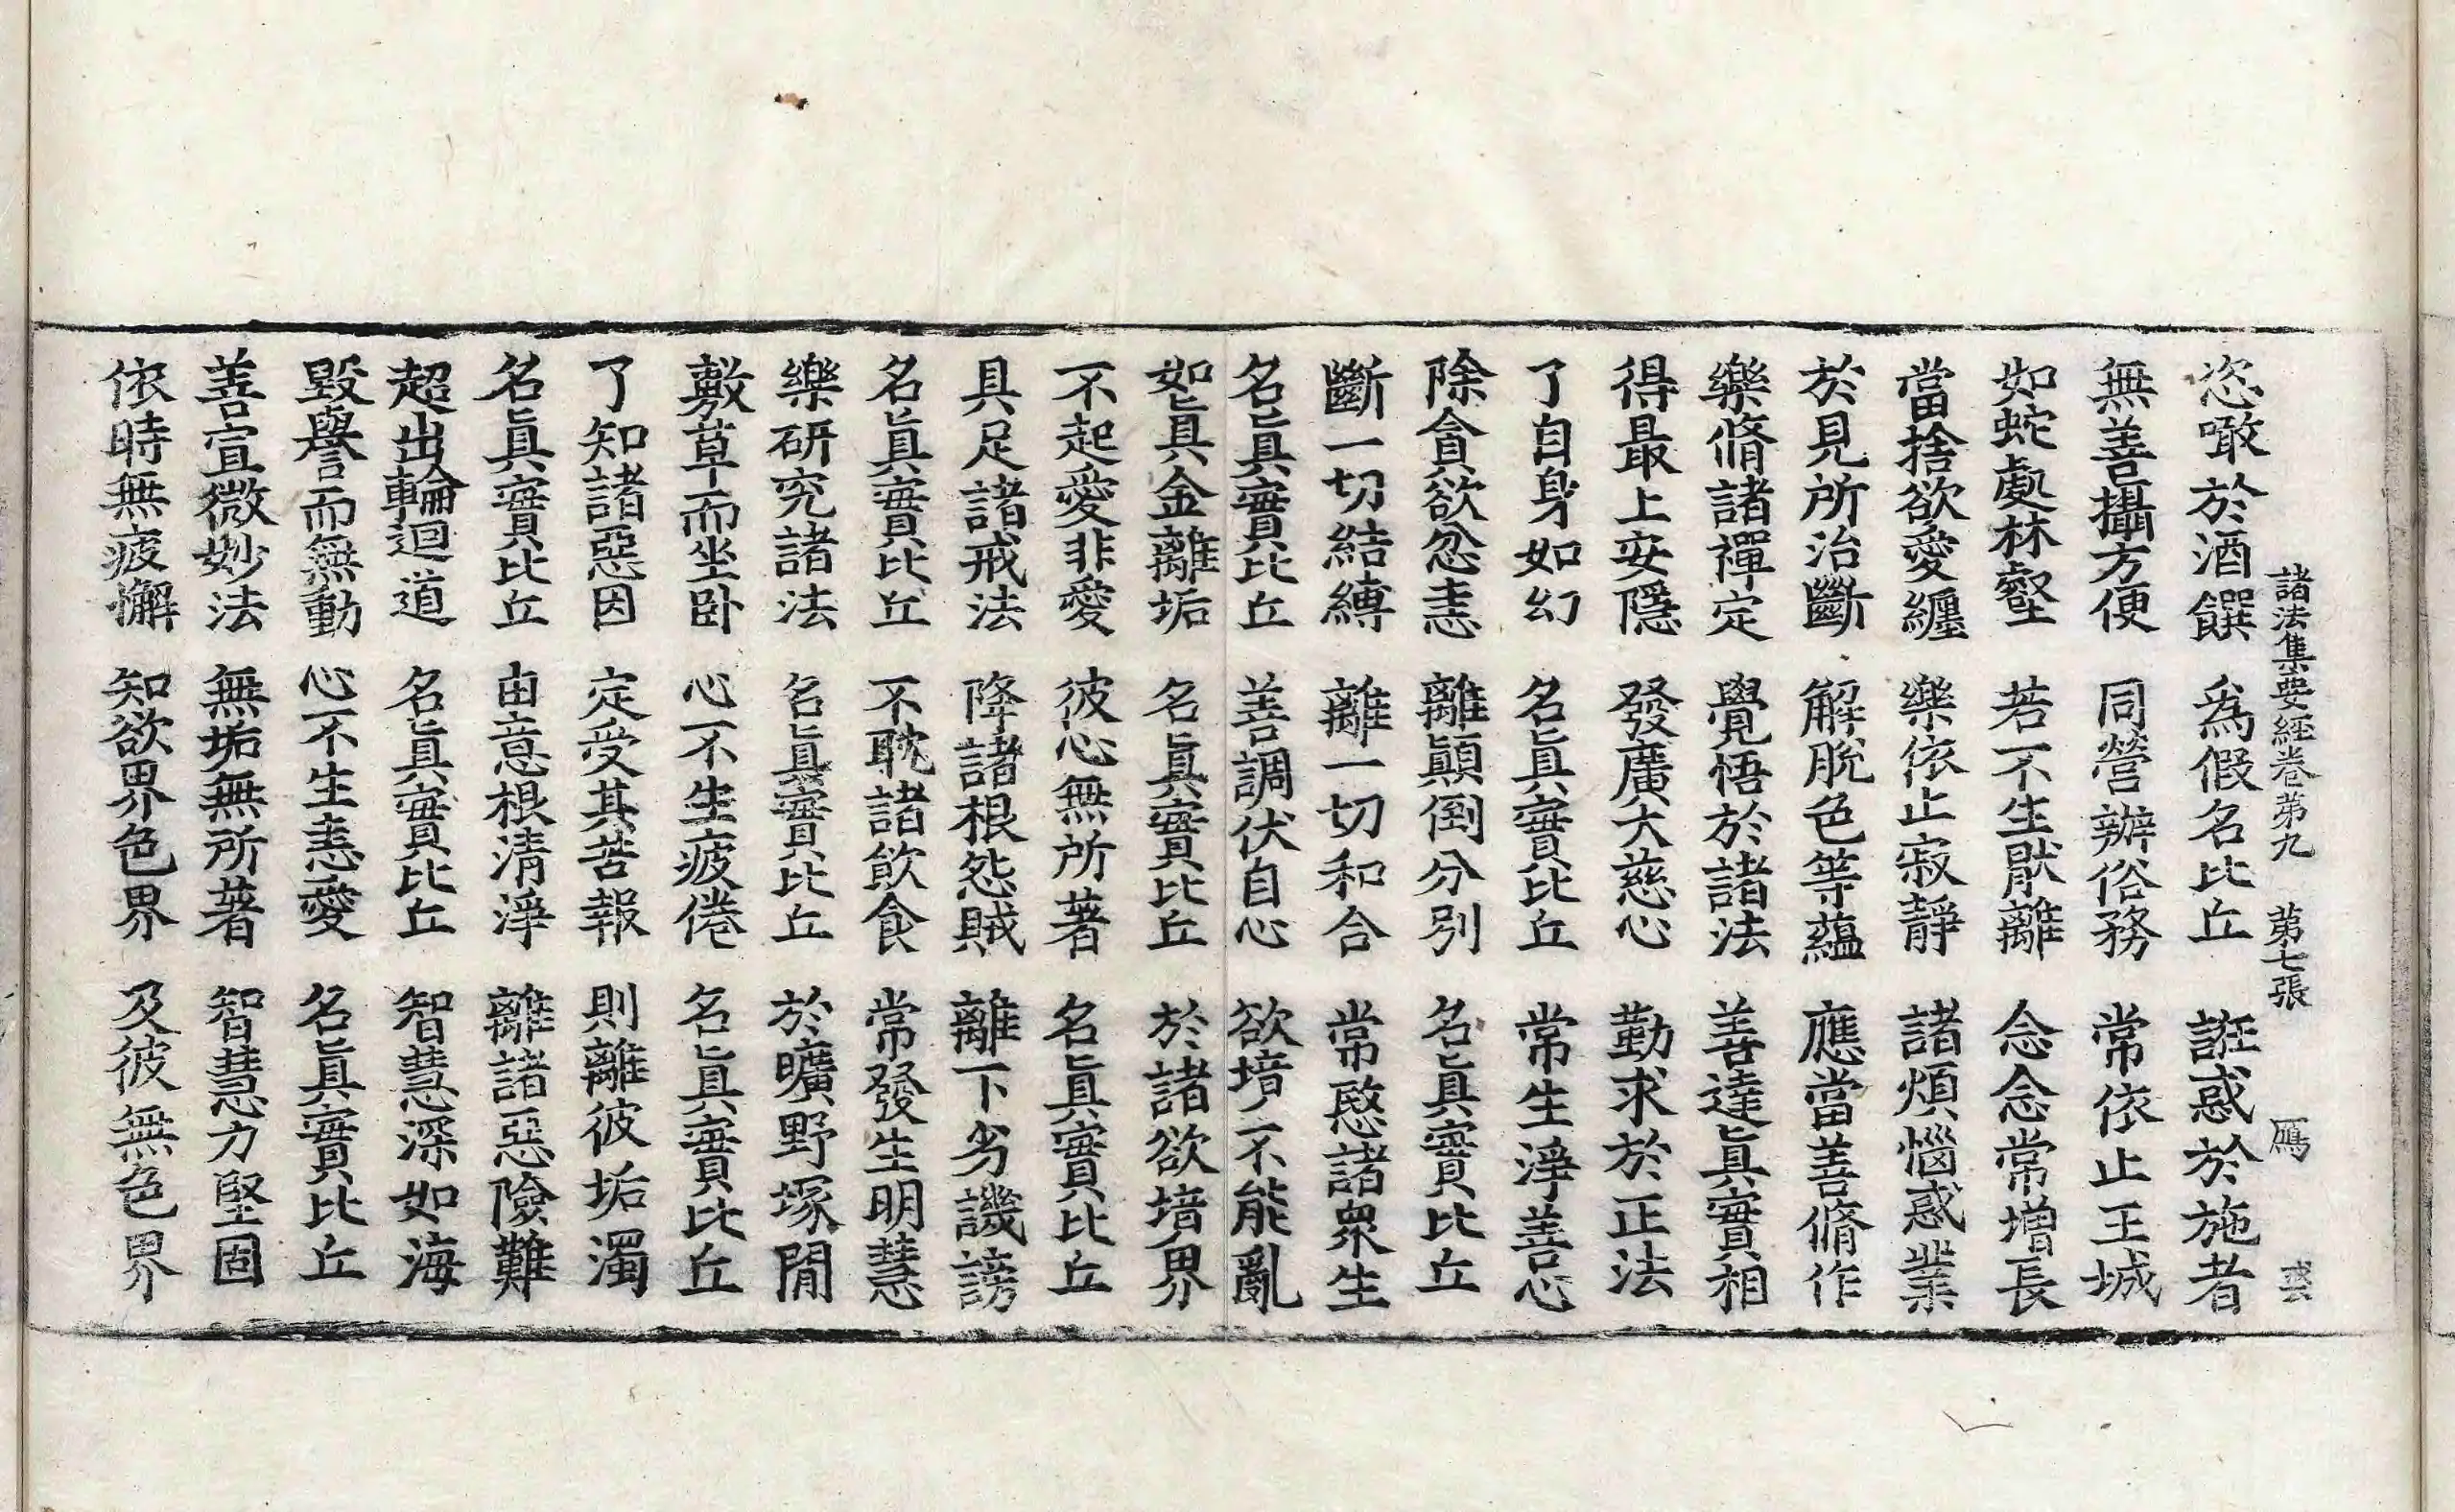 諸法集要經卷第九 第七張 鴈
恣噉於酒饌 爲假名比丘 誑惑於施者
無善攝方便 同營辦俗務 常依止王城
如蛇處林壑 若不生猒離 念念常增長
當捨欲愛纏 樂依止寂靜 諸煩惱惑業
於見所治斷 解脫色等蘊 應當善脩作
樂脩諸禪定 覺悟於諸法 善達眞實相
得最上安隱 發廣大慈心 勤求於正法
了自身如幻 名眞實比丘 常生淨善心
除貪欲忿恚 離顚倒分別 名眞實比丘
斷一切結縛 離一切和合 常愍諸衆生
名眞實比丘 善調伏自心 欲境不能亂
如眞金離垢 名眞實比丘 於諸欲境界
不起愛非愛 彼心無所著 名眞實比丘
具足諸戒法 降諸根怨賊 離下劣譏謗
名眞實比丘 不耽諸飮食 常發生明慧
樂研究諸法 名眞實比丘 於曠野塚閒
敷草而坐卧 心不生疲倦 名眞實比丘
了知諸惡因 定受其苦報 則離彼垢濁
名眞實比丘 由意根清淨 離諸惡險難
超出輪迴道 名眞實比丘 智慧深如海
毀譽而無動 心不生恚愛 名眞實比丘
善宣微妙法 無垢無所著 智慧力堅固
依時無疲懈 知欲界色界 及彼無色界